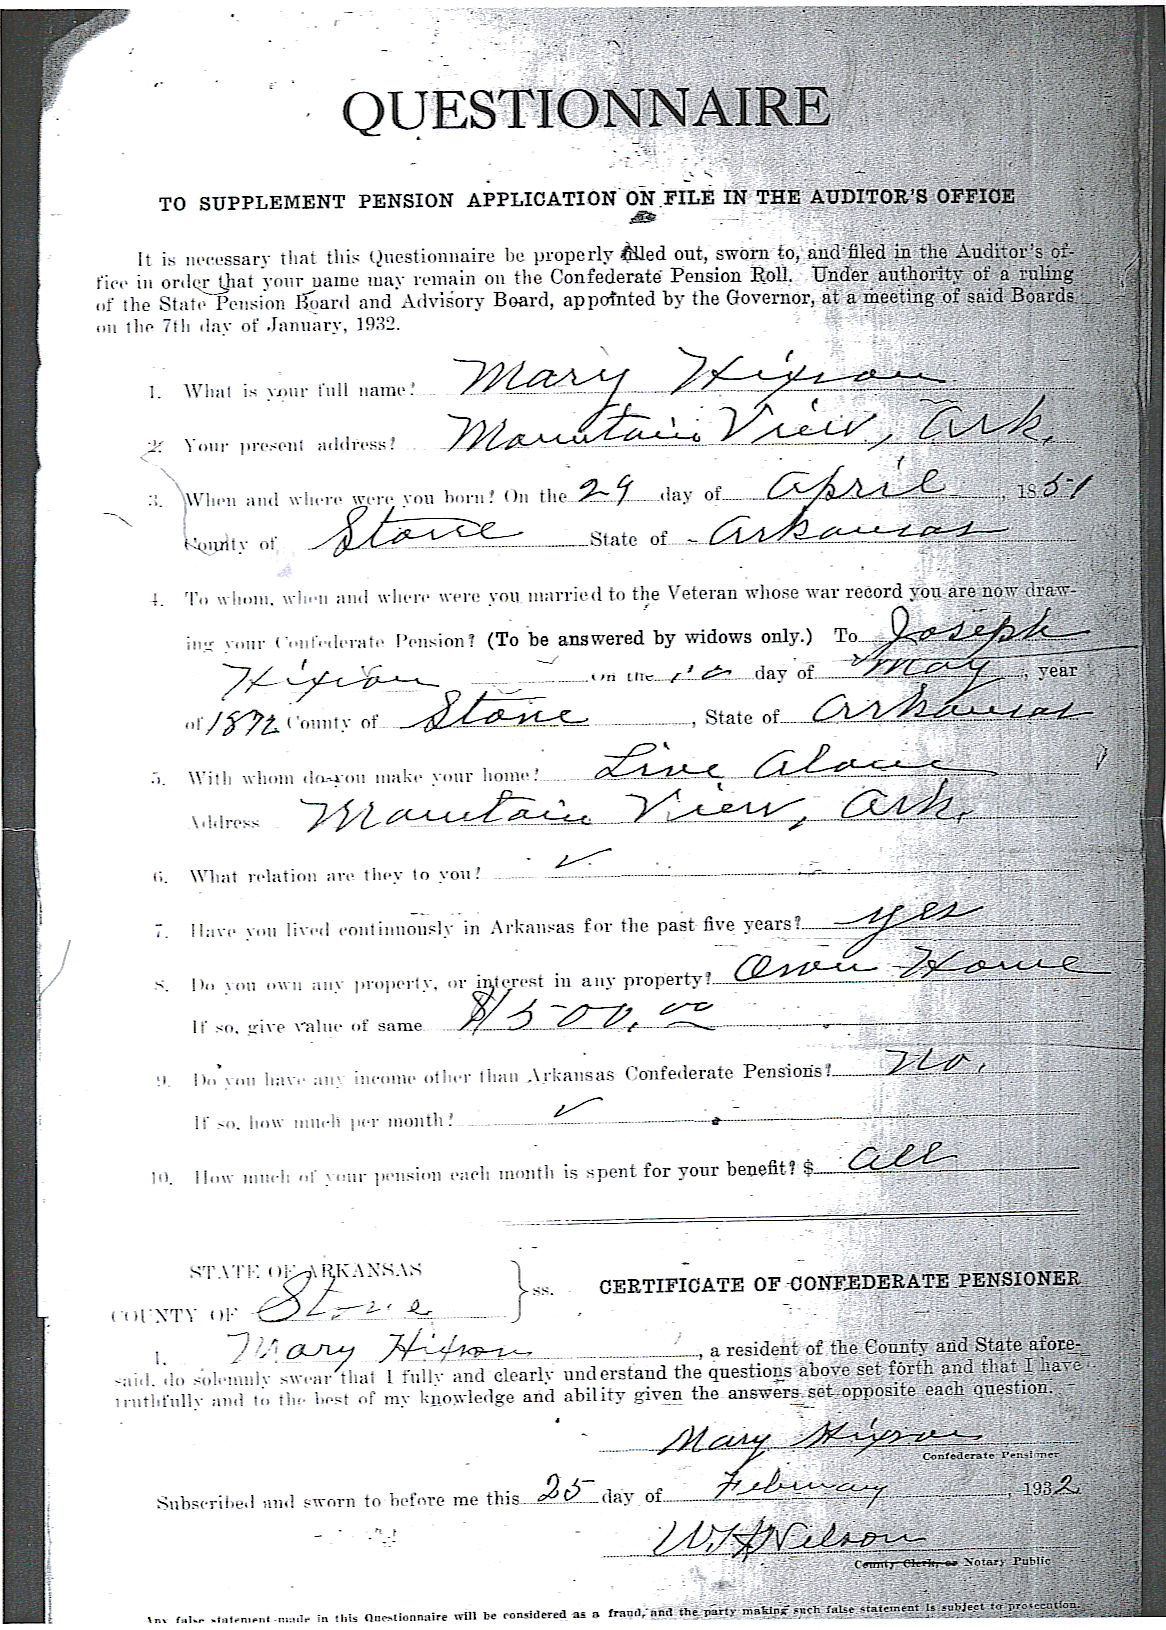 QUESTIONNAIRE
TO SUPPLEMENT PENSION APPLICATION ON FILE IN THE AUDITOR'S OFFICE
It is necessary that this Questionnaire be properly filled out, sworn to, and filed in the Auditor's of-
fice in order that your name may remain on the Confederate Pension Roll. Under authority of a ruling
of the State Pension Board and Advisory Board, appointed by the Governor, at a meeting of said Boards
on the 7th day of January, 1932.
1. What is your full name? Mary Hixson
2. Your present address? Mountain View, Ark.
3. When and where were you born? On the 29 day of April, 1851
County of Stone State of Arkansas
4. To whom, when and where were you married to the Veteran whose war record you are now draw-
ing your Confederate Pension? (To be answered by widows only.) To Joseph
Hixson on the 10 day of May, year
of 1872 County of Stone, State of Arkansas
5. With whom do you make your home? Live Alone
Address Mountain View, Ark.
6. What relation are they to you? ✓
7. Have you lived continuously in Arkansas for the past five years? yes
8. Do you own any property, or interest in any property? Own Home
If so, give value of same $1500.00
9. Do you have any income other than Arkansas Confederate Pensions? No.
If so, how much per month? ✓
10. How much of your pension each month is spent for your benefit? $ all
STATE OF ARKANSAS } ss. CERTIFICATE OF CONFEDERATE PENSIONER
COUNTY OF Stone
I, Mary Hixson, a resident of the County and State afore-
said, do solemnly swear that I fully and clearly understand the questions above set forth and that I have
truthfully and to the best of my knowledge and ability given the answers set opposite each question.
Mary Hixson
Confederate Pensioner
Subscribed and sworn to before me this 25 day of February, 1932
W.H. Nelson
County Clerk, or Notary Public
Any false statement made in this Questionnaire will be considered as a fraud, and the party making such false statement is subject to prosecution.